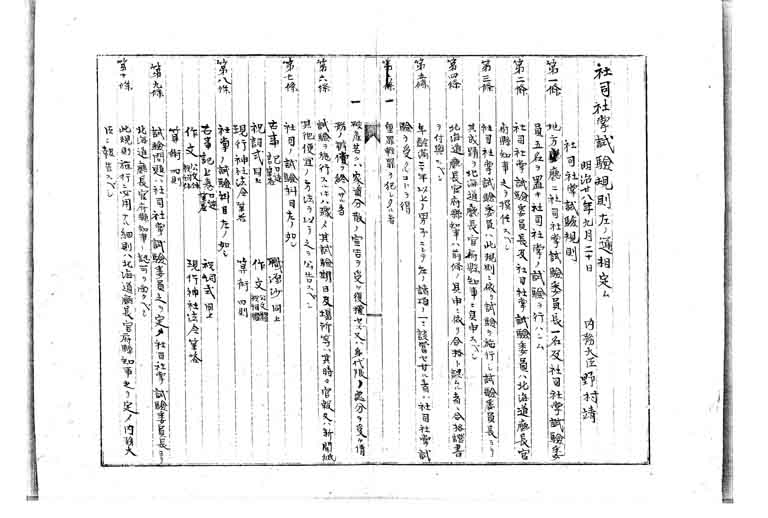 社司社掌試驗規則左ノ通相定ム
明治廿八年九月二十日
内務大臣 野村靖
社司社掌試驗規則
第一條 地方廳ニ社司社掌試驗委員長一名及社司社掌試驗委
員五名ヲ置キ社司社掌ノ試驗ヲ行ハシム
第二條 社司社掌試驗委員長及社司社掌試驗委員ハ北海道廳長官
府縣知事之ヲ撰任スベシ
第三條 社司社掌試驗委員ハ此規則ニ依リ試驗ヲ施行シ試驗委員長ヨリ
其成蹟ヲ北海道廳長官府縣知事ニ具申スベシ
第四條 北海道廳長官府縣知事ハ前條ノ具申ニ依リ合格ト認ムル者ニ合格證書
ヲ付與スベシ
第五條 年齡滿二十年以上ノ男子ニシテ左ノ諸項ノ一ニ該當セザル者ハ社司社掌試
驗ヲ受クルコトヲ得
一 重罪輕罪ヲ犯シタル者
一 破産若シハ家資分散ノ宣告ヲ受ケ復權セズ又ハ身代限ノ處分ヲ受ケ債
務ノ辨償ヲ終ヘザル者
第六條 試驗ヲ施行スルトキハ豫メ其試驗期日及場所等ハ其時々官報又ハ新聞紙
其他便宜ノ方法ヲ以テ之ヲ公告スベシ
第七條 社司ノ試驗科目左ノ如シ
古事記 職原抄 同上
祝詞式 同上 作文
現行神社法令 筆答 算術 四則
第八條 社掌ノ試驗科目左ノ如シ
古事記上卷 祝詞式 同上
作文 現行神社法令 筆答
算術 四則
第九條 試驗問題ハ社司社掌試驗委員之ヲ定メ社司社掌試驗委員長ヨリ
北海道廳長官府縣知事ノ認可ヲ受クベシ
第十條 此規則施行ニ必用ナル細則ハ北海道廳長官府縣知事之ヲ定メ内務大
臣ニ報告スベシ